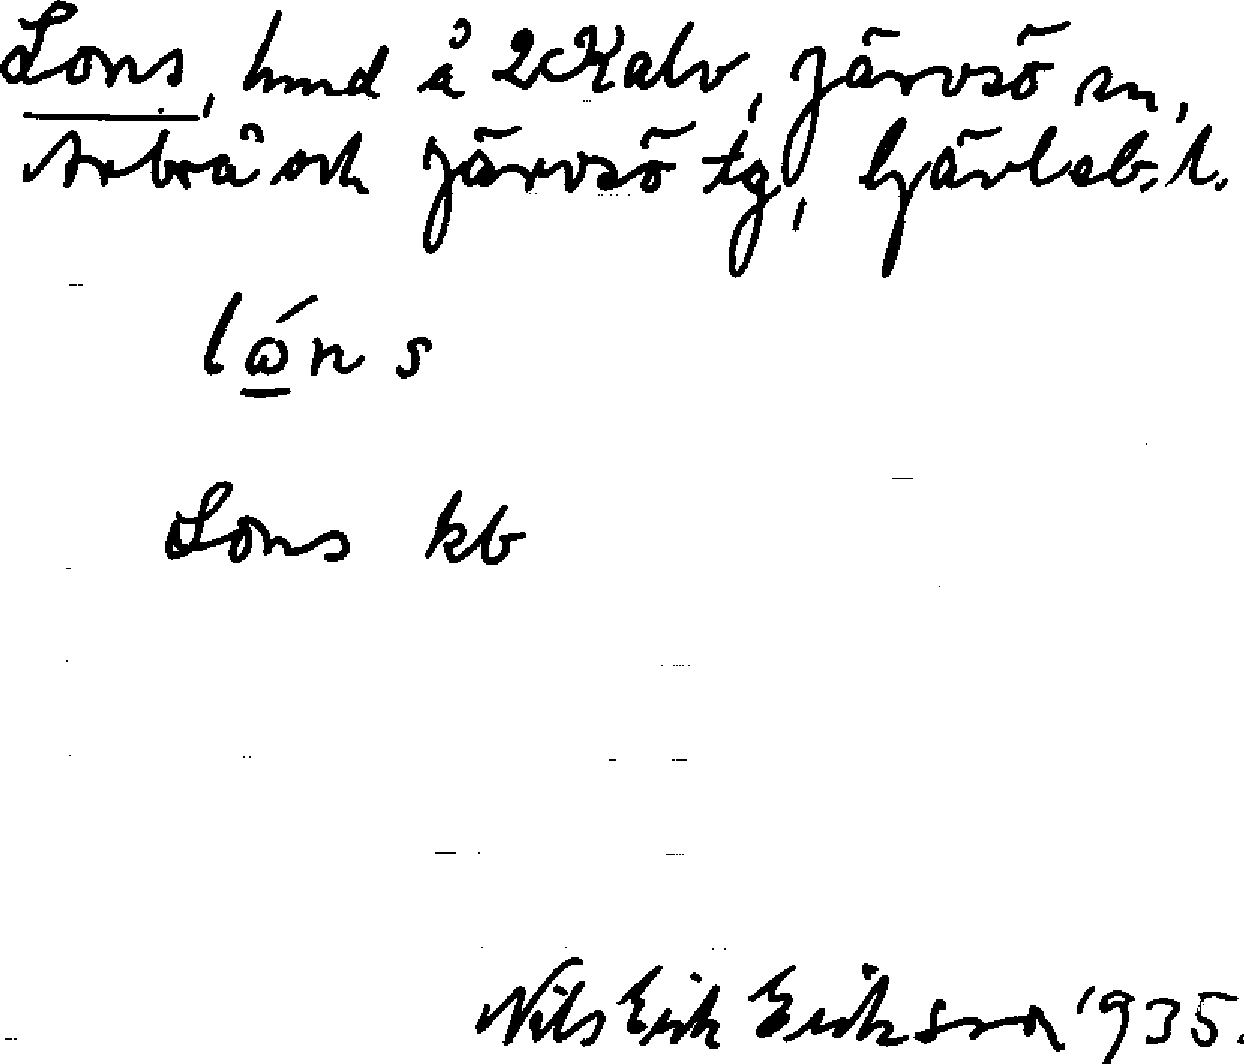 Lons, hmd å 2 Kalv, Järvsö sn,
Arbrå och Järvsö tg, Gävleb. l.
lɷ́n s
Lons kb
Nils Erik Eriksson 1935.